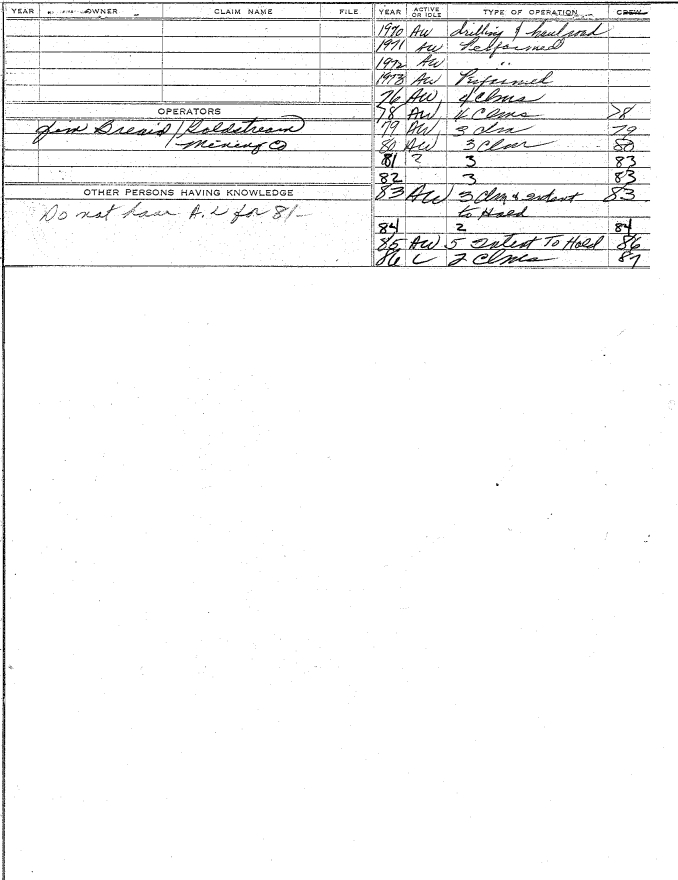 YEAR OWNER CLAIM NAME FILE
OPERATORS
Jim / Goldstream
Mining Co
OTHER PERSONS HAVING KNOWLEDGE
Do not have A.L for 81-
YEAR ACTIVE OR IDLE TYPE OF OPERATION CREW
1970 AW drilling & haul road
1971 AW Performed
1972 AW "
1973 AW Performed
76 AW 4 Clms
78 AW Clms 78
79 AW 3 clm 79
80 AW 3 Clm 80
81 ? 3 83
82 3 83
83 AW 3 Clm & intent 83
to Hold
84 2 84
85 AW 5 Intent To Hold 86
86 2 Clms 87